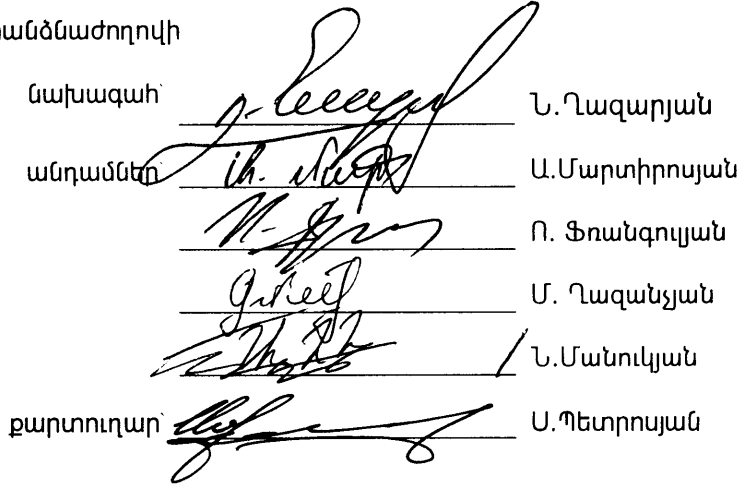 անձնաժողովի
նախագահ՝ Ն.Ղազարյան
անդամներ՝ Ա.Մարտիրոսյան
Ռ. Ֆռանգուլյան
Մ. Ղազանչյան
Ն.Մանուկյան
քարտուղար՝ Ս.Պետրոսյան